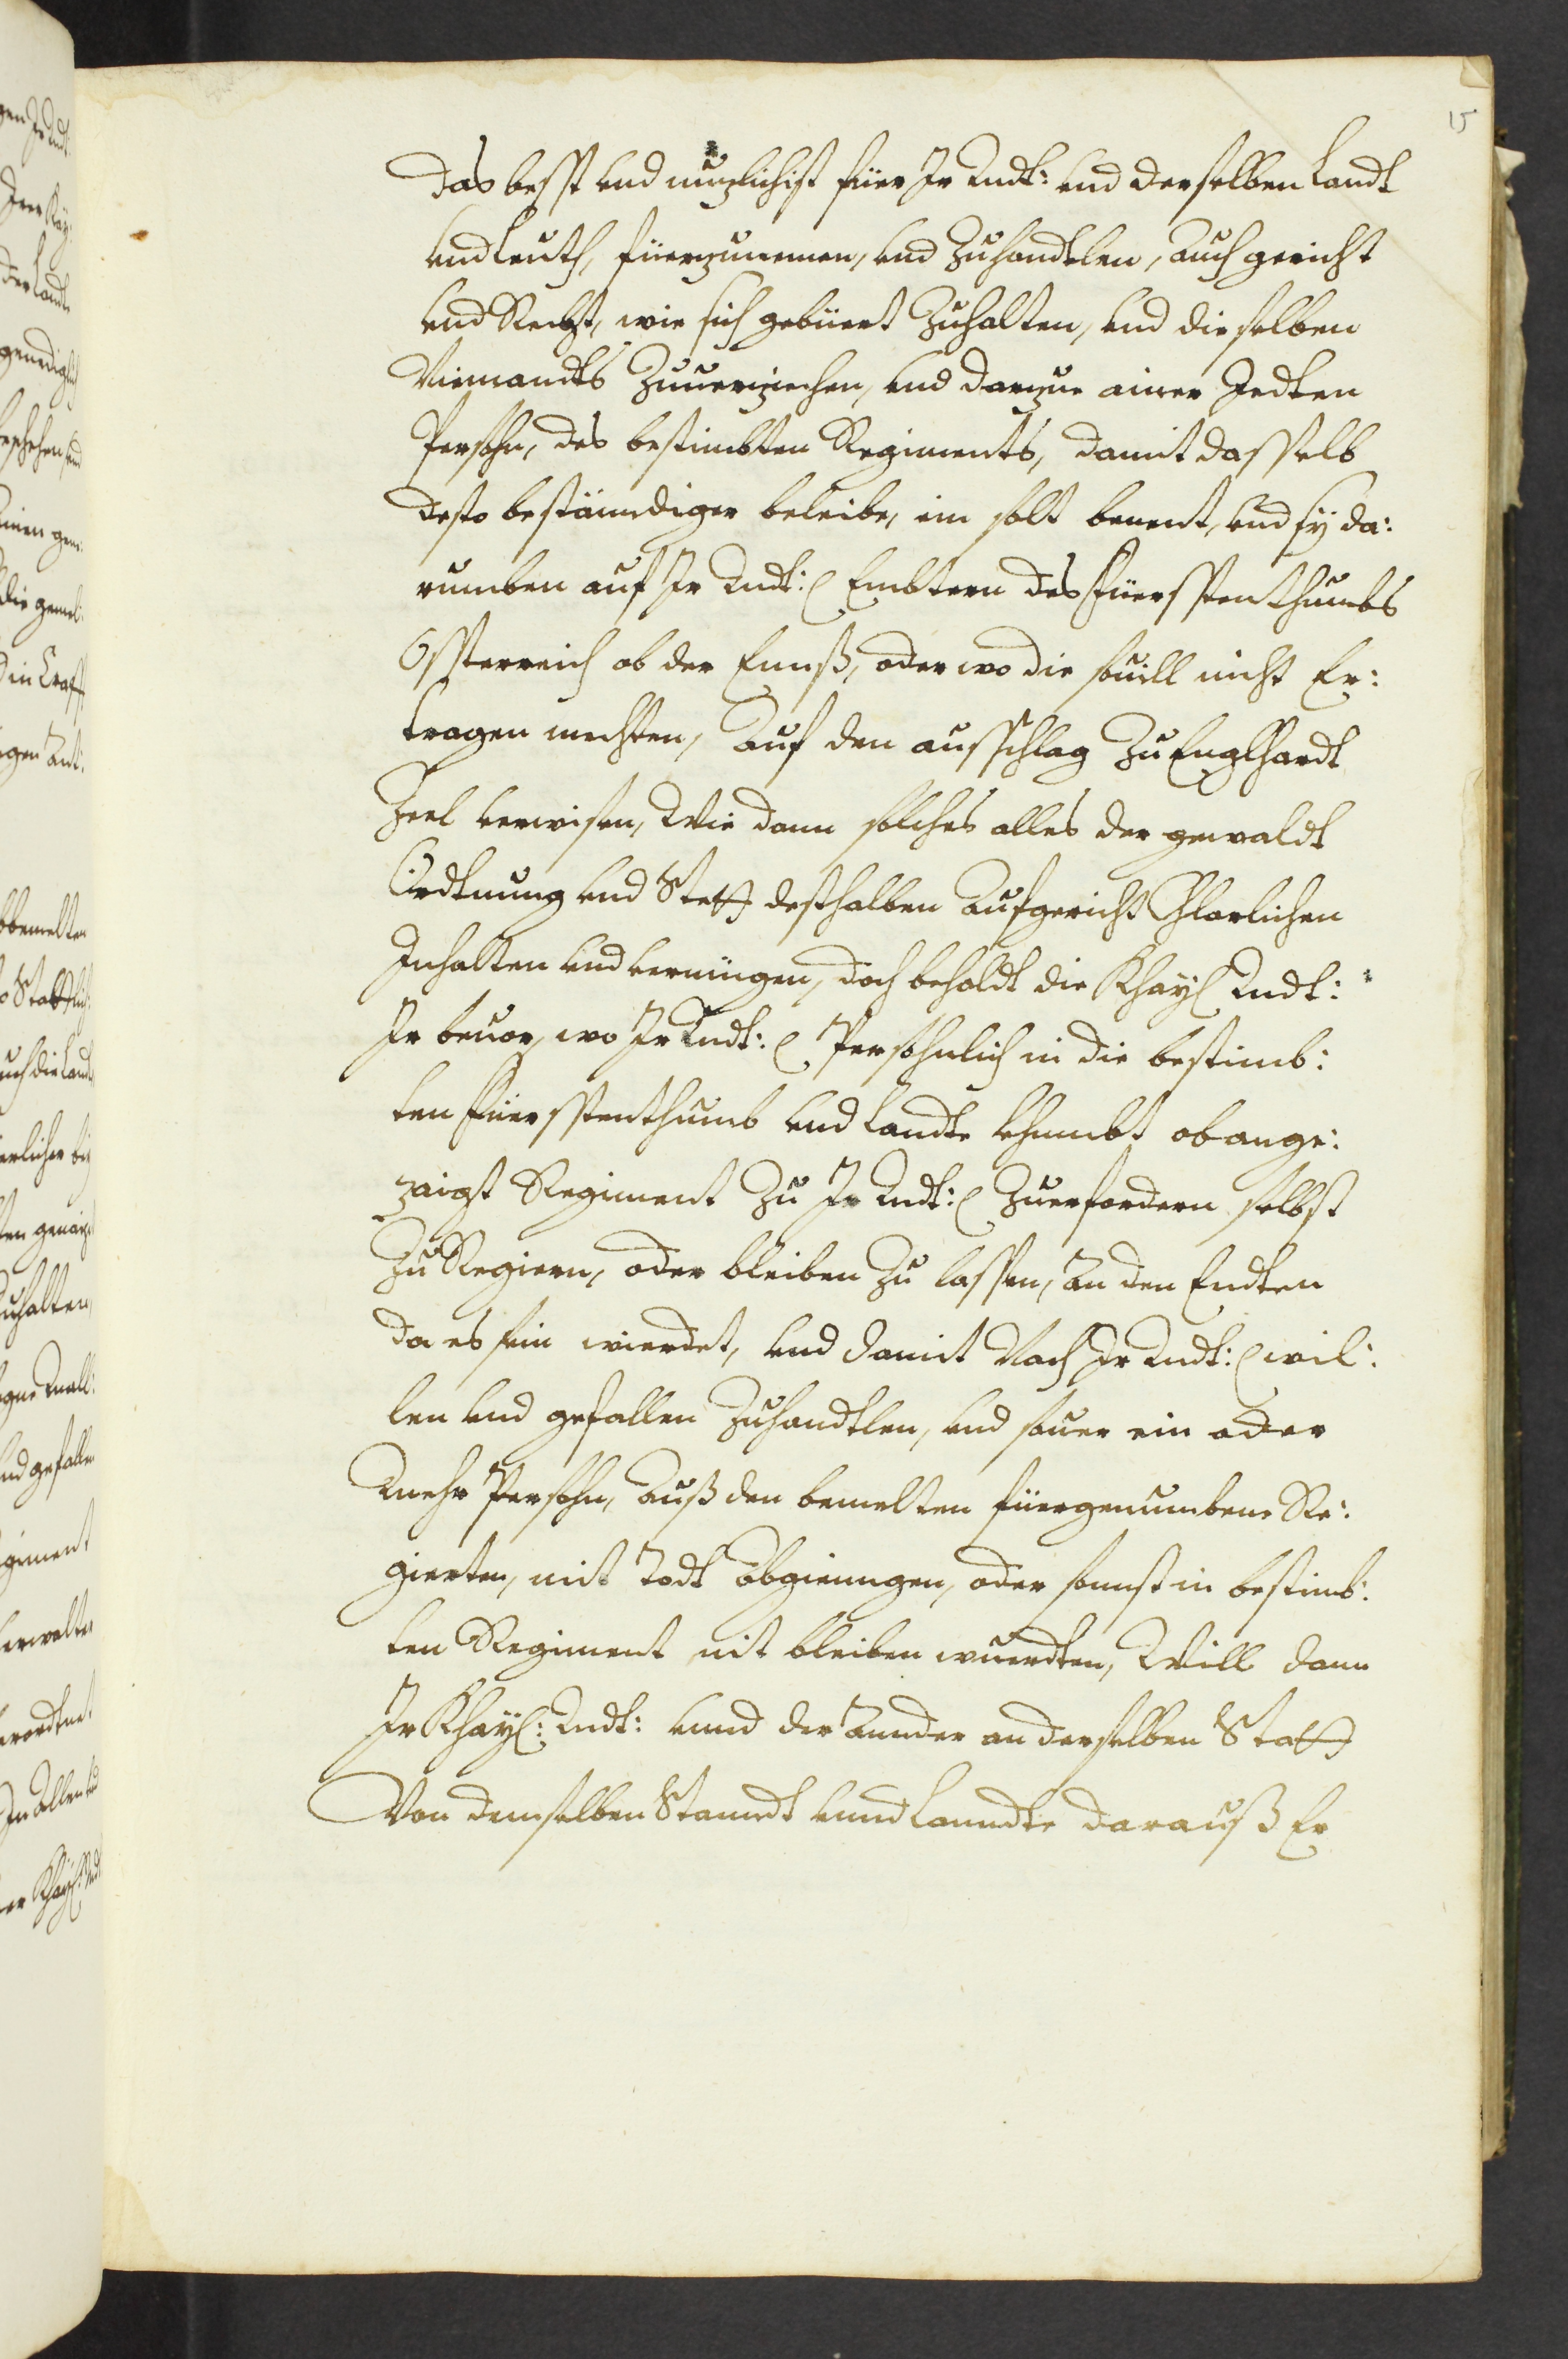 15
das besst vnd nuzlichist füer Ir Mdt: vnd derselben Landt
vnd Leuth, füerzunemen, vnd Zuhandtlen, auch gericht
vnd Recht, wie sich gebüert Zuhalten, vnd dieselben
Niemandts Zuuerziechen, vnd darzue ainer Jedten
Persohn, des bestimbten Regiments, damit dasselb
desto bestänndiger beleibe, ein solt benent, vnd sÿ da:
rumben auf Ir Mdt: Embtern des Füersstenthumbs
Össterreich ob der Ennß, oder wo die souill nicht Er:
tragen mechten, Auf den aufschlag Zu Englhardt
Zeel verwisen, Wie dann solches alles der gewaldt
Ordtnung vnd Stett desthalben Aufgericht Clarlichen
Inhalten vnd vermügen, doch behaldt die Khaÿ Mdt:
Ir beuor, wo Ir Mdt: Persohnlich in die bestimb:
ten Füersstenthumb vnd Landte khumbt obange:
zaigt Regiment Zu Ir Mdt: Zuerfordern selbst
Zu Regiern, oder bleiben Zu lassen, An den Endten
da es sein wierdet, vnd damit Nach Ir Mdt: wil:
len vnd gefallen Zuhandtlen, vnd souer ein oder
Mehr Persohn, Auß den bemelten füergenumbene Re:
gierten, mit Todt Abgienngen, oder sonnst in bestimb:
ten Regiment nit bleiben wuerdten, Will dann
Ir Khaÿ: Mdt: vnnd der Annder an derselben Statt
Von demselben Stanndt vnnd Lanndte darauß Er